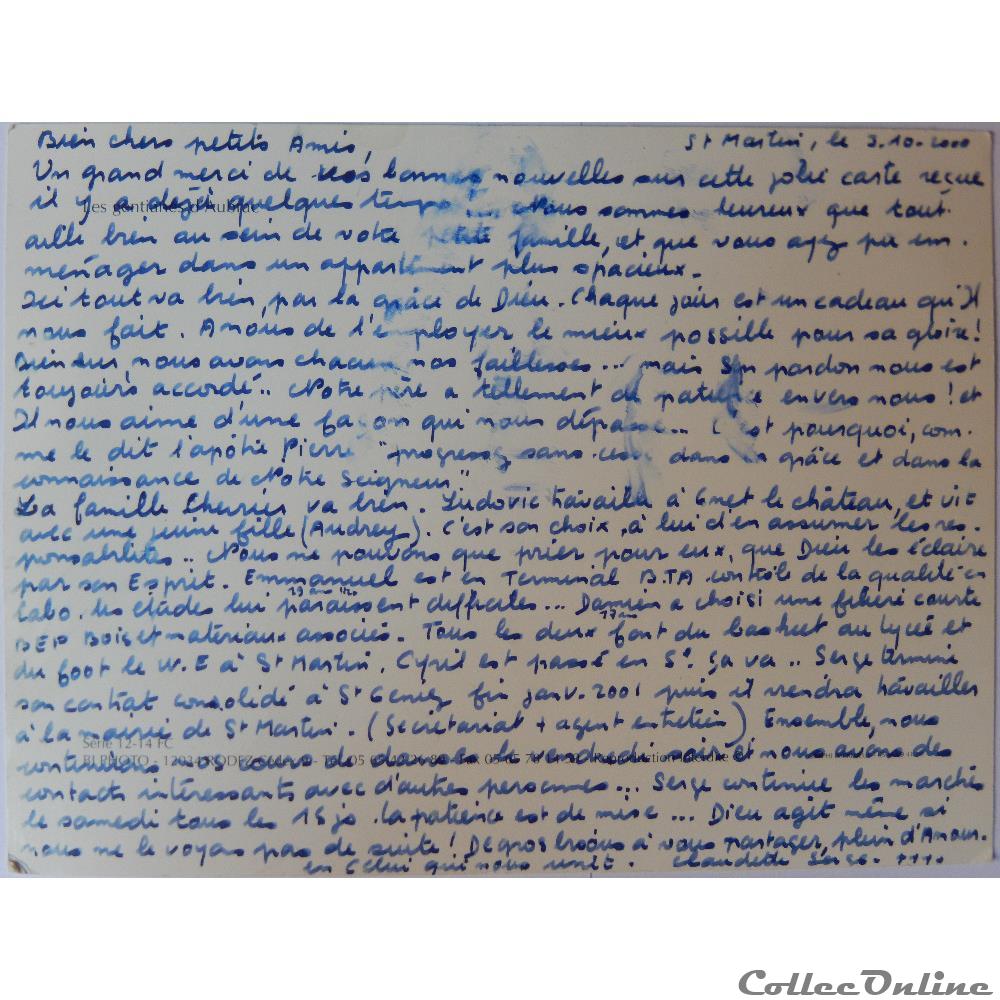 Bien chers petits Amis, St Martin, le 3.10.2000
Un grand merci de vos bonnes nouvelles sur cette jolie carte reçue
il y a déjà quelques temps !... Nous sommes heureux que tout
Les gentianes d'Aubrac
aille bien au sein de votre petite famille, et que vous ayez pu em-
ménager dans un appartement plus spacieux.
Ici tout va bien, par la grâce de Dieu. Chaque jour est un cadeau qu'Il
nous fait. A nous de l'employer le mieux possible pour sa gloire !
Bien sur, nous avons chacun nos faiblesses... mais Son pardon nous est
toujours accordé.. Notre père a tellement de patience envers nous ! et
Il nous aime d'une façon qui nous dépasse... C'est pourquoi, com-
me le dit l'apôtre Pierre "progressez sans cesse dans la grâce et dans la
connaissance de Notre Seigneur"
La famille va bien. Ludovic travaille à le château, et vit
avec une jeune fille (Audrey). C'est son choix, à lui d'en assumer les res-
ponsabilités.. Nous ne pouvons que prier pour eux, que Dieu les éclaire
par son Esprit. Emmanuel est en Terminal B.T.A contrôle de la qualité en
19 ans 1/2
labo. les études lui paraissent difficiles... Damien a choisi une filière courte
17 ans
BEP Bois et matériaux associés. Tous les deux font du basket au lycée et
du foot le W.E à St Martin. Cyril est passé en 5e. ça va.. Serge termine
son contrat consolidé à St Geniez fin janv. 2001 puis il viendra travailler
à la mairie de St Martin. (Secrétariat + agent entretien) Ensemble, nous
Série 12-14 FC
continuons les cours de danses le vendredi soir et nous avons des
BJ PHOTO - 12034 RODEZ
contacts intéressants avec d'autres personnes... Serge continue les marchés
le samedi tous les 15 js. la patience est de mise... Dieu agit même si
nous ne le voyons pas de suite ! De gros bisous à vous partager, plein d'Amour.
en Celui qui nous unit. Claudette Serge.
CollecOnline